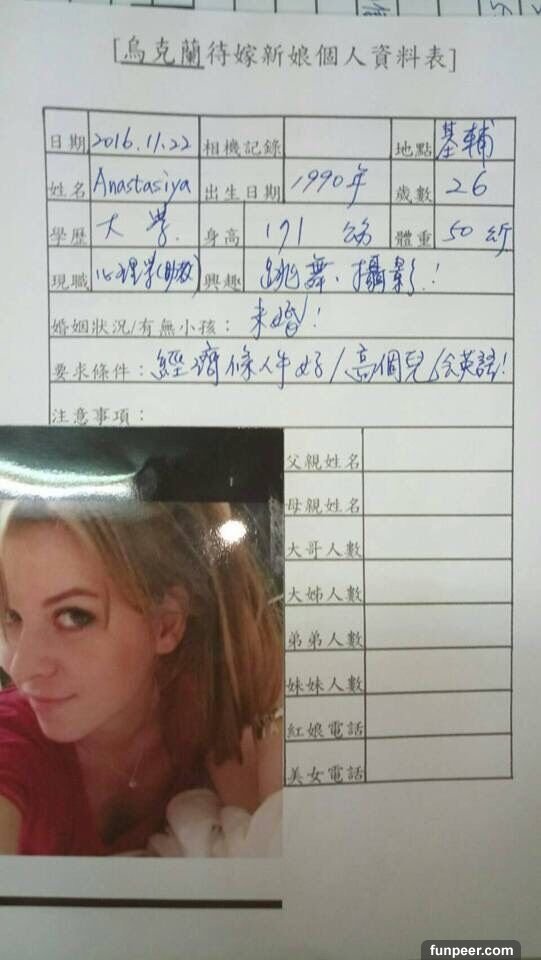 [烏克蘭待嫁新娘個人資料表]
日期 2016.11.22 相機記錄 地點 基輔
姓名 Anastasiya 出生日期 1990年 歲數 26
學歷 大學. 身高 171 公分 體重 50 公斤
現職 心理學(助教) 興趣 跳舞、攝影.!
婚姻狀況/有無小孩: 未婚!
要求條件: 經濟條件好/高個兒/會英語!
注意事項:
父親姓名
母親姓名
大哥人數
大姊人數
弟弟人數
妹妹人數
紅娘電話
美女電話
funpeer.com